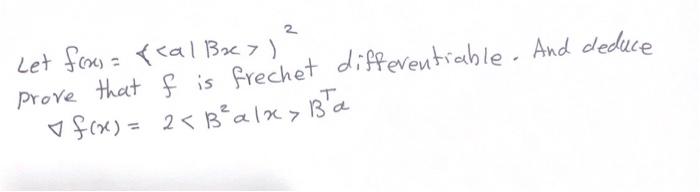 Let f(x) = (<a|Bx>)²
prove that f is frechet differentiable. And deduce
∇ f(x) = 2 < B² a|x > Bᵀa